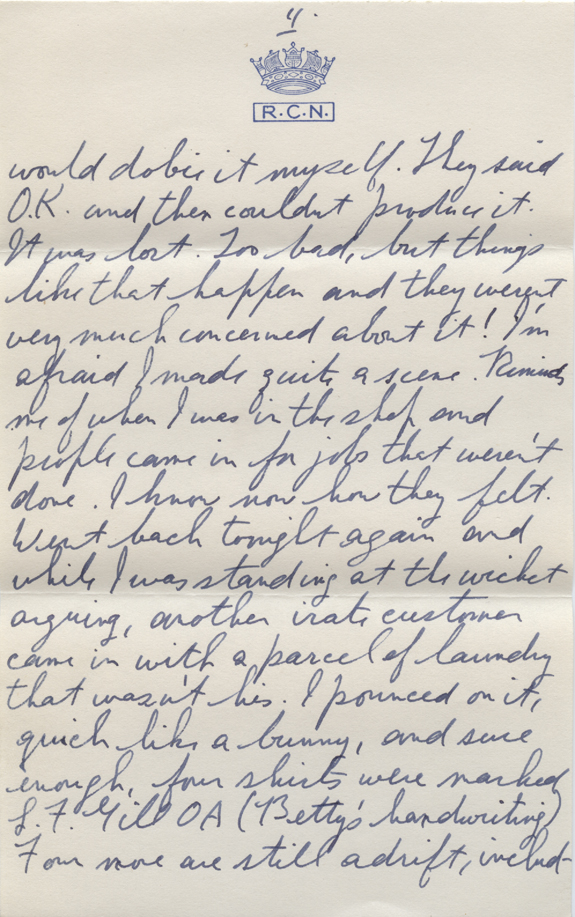 4.
R.C.N.
would dobie it myself. They said
O.K. and then couldnt produce it.
It was lost. Too bad, but things
like that happen and they weren't
very much concerned about it! I'm
afraid I made quite a scene. Reminds
me of when I was in the shop and
people came in for jobs that weren't
done. I know now how they felt.
Went back tonight again and
while I was standing at the wicket
arguing, another irate customer
came in with a parcel of laundry
that wasn't his. I pounced on it,
quick like a bunny, and sure
enough, four shirts were marked
L. F. Gill OA (Betty's handwriting)
Four more are still adrift, includ-